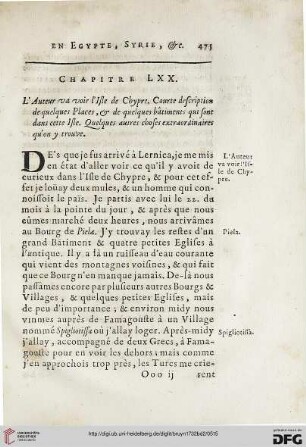 EN EGYPTE, SYRIE, &c. 475
CHAPITRE LXX.
L'Auteur va voir l'Isle de Chypre. Courte description
de quelques Places, & de quelques bâtiments qui sont
dans cette Isle. Quelques autres choses extraordinaires
qu'on y trouve.
DE's que je fus arrivé à Lernica, je me mis
en état d'aller voir ce qu'il y avoit de
curieux dans l'Isle de Chypre, & pour cet ef-
fet je loüay deux mules, & un homme qui con-
noissoit le pais. Je partis avec lui le 22. du
mois à la pointe du jour, & après que nous
eûmes marché deux heures, nous arrivâmes
au Bourg de Piela. J'y trouvay les restes d'un
grand Bâtiment & quatre petites Eglises à
l'antique. Il y a là un ruisseau d'eau courante
qui vient des montagnes voisines, & qui fait
que ce Bourg n'en manque jamais. De-là nous
passâmes encore par plusieurs autres Bourgs &
Villages, & quelques petites Eglises, mais
de peu d'importance; & environ midy nous
vinmes auprès de Famagouste à un Village
nommé Spigliotissa où j'allay loger. Après-midy
j'allay, accompagné de deux Grecs, à Fama-
gouste pour en voir les dehors; mais comme
on n'en approche pas trop près, les Turcs crie-
Ooo ij rent
L'Auteur
va voir l'Is-
le de Chy-
pre.
Piela.
Spigliotissa.
http://digi.ub.uni-heidelberg.de/diglit/bruyn1732bd2/0515
© Universitätsbibliothek Heidelberg